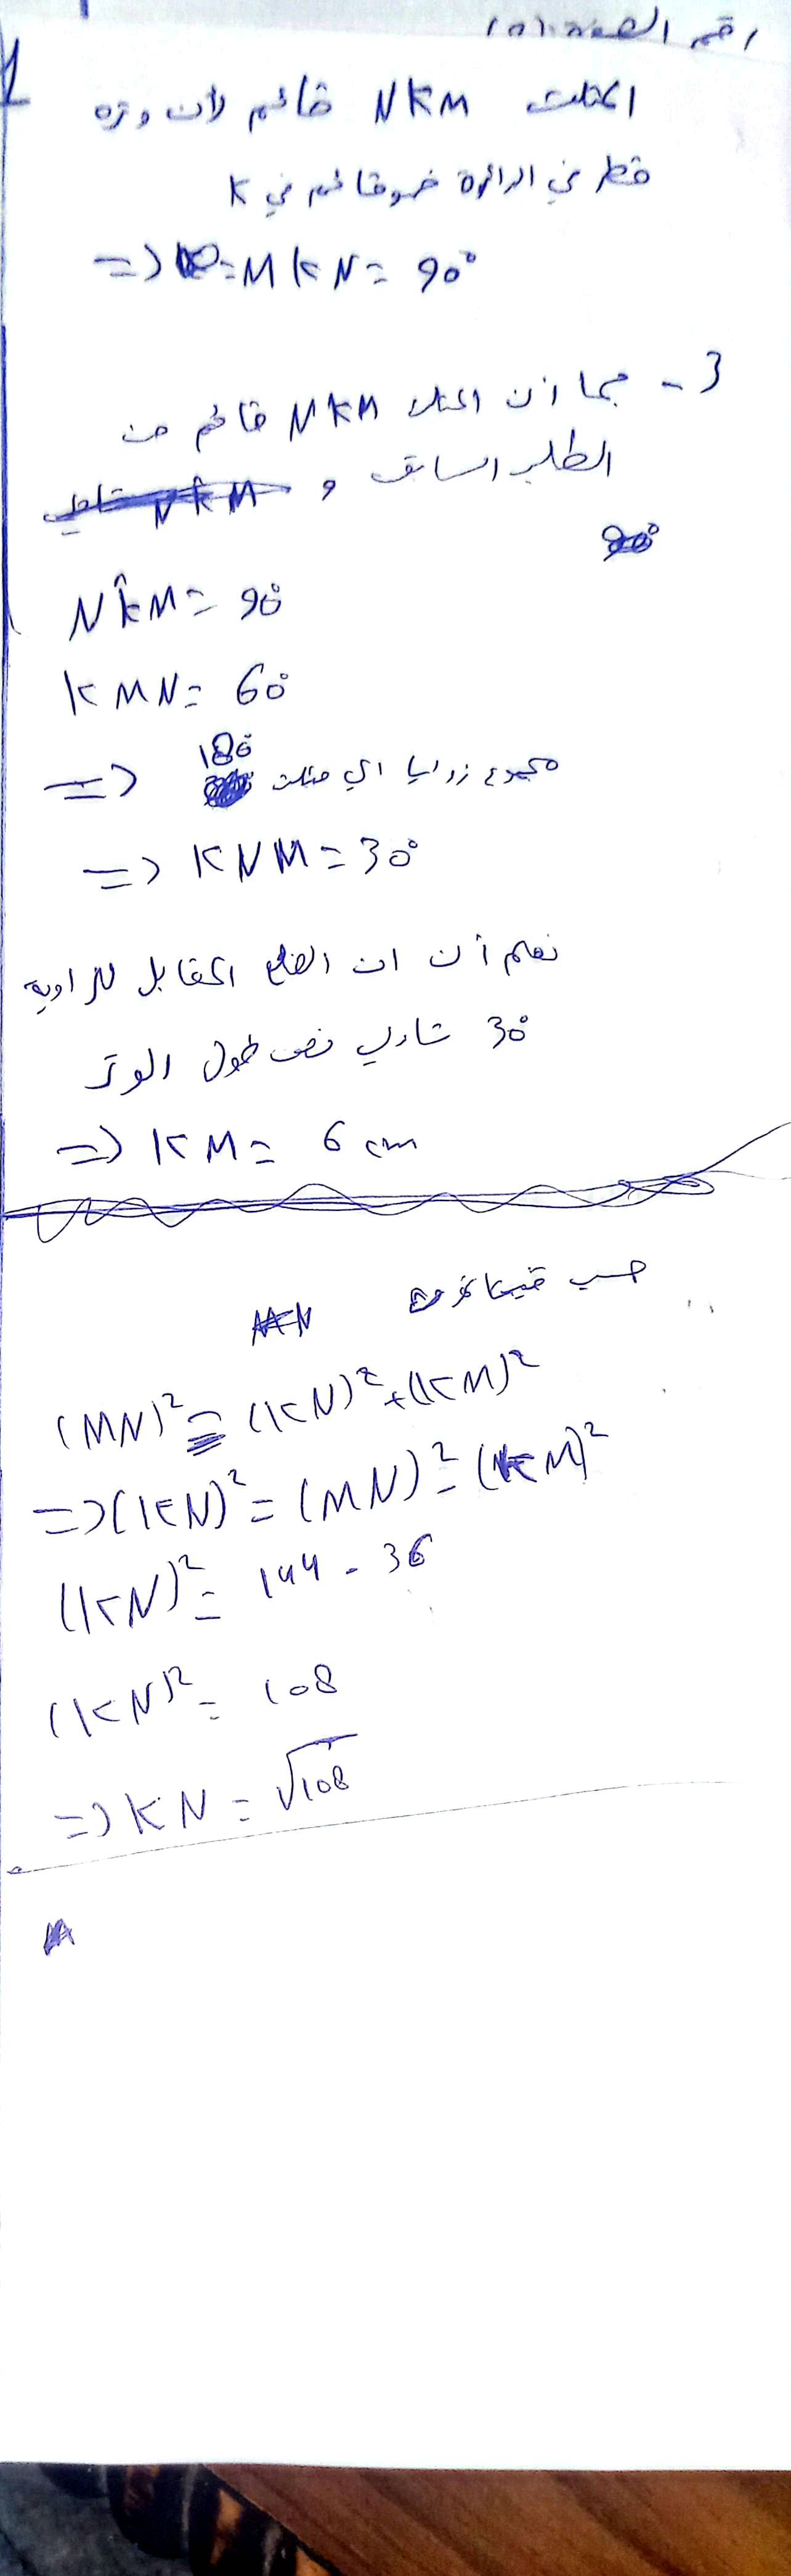 رقم الصفحة (٥)
1
المثلث NKM قائم لأن وتره
قطر في الدائرة فهو قائم في K
=> MKN = 90°
3 - بما أن المثلث NKM قائم من
الطلب السابق و
NK̂M = 90°
KMN = 60°
=> 180° مجموع زوايا اي مثلث
=> KNM = 30°
نعلم أن ان الضلع المقابل للزاوية
30° تساوي نصف طول الوتر
=> KM = 6 cm
حسب فيثاغورث
(MN)² = (KN)² + (KM)²
=> (KN)² = (MN)² - (KM)²
(KN)² = 144 - 36
(KN)² = 108
=> KN = √108